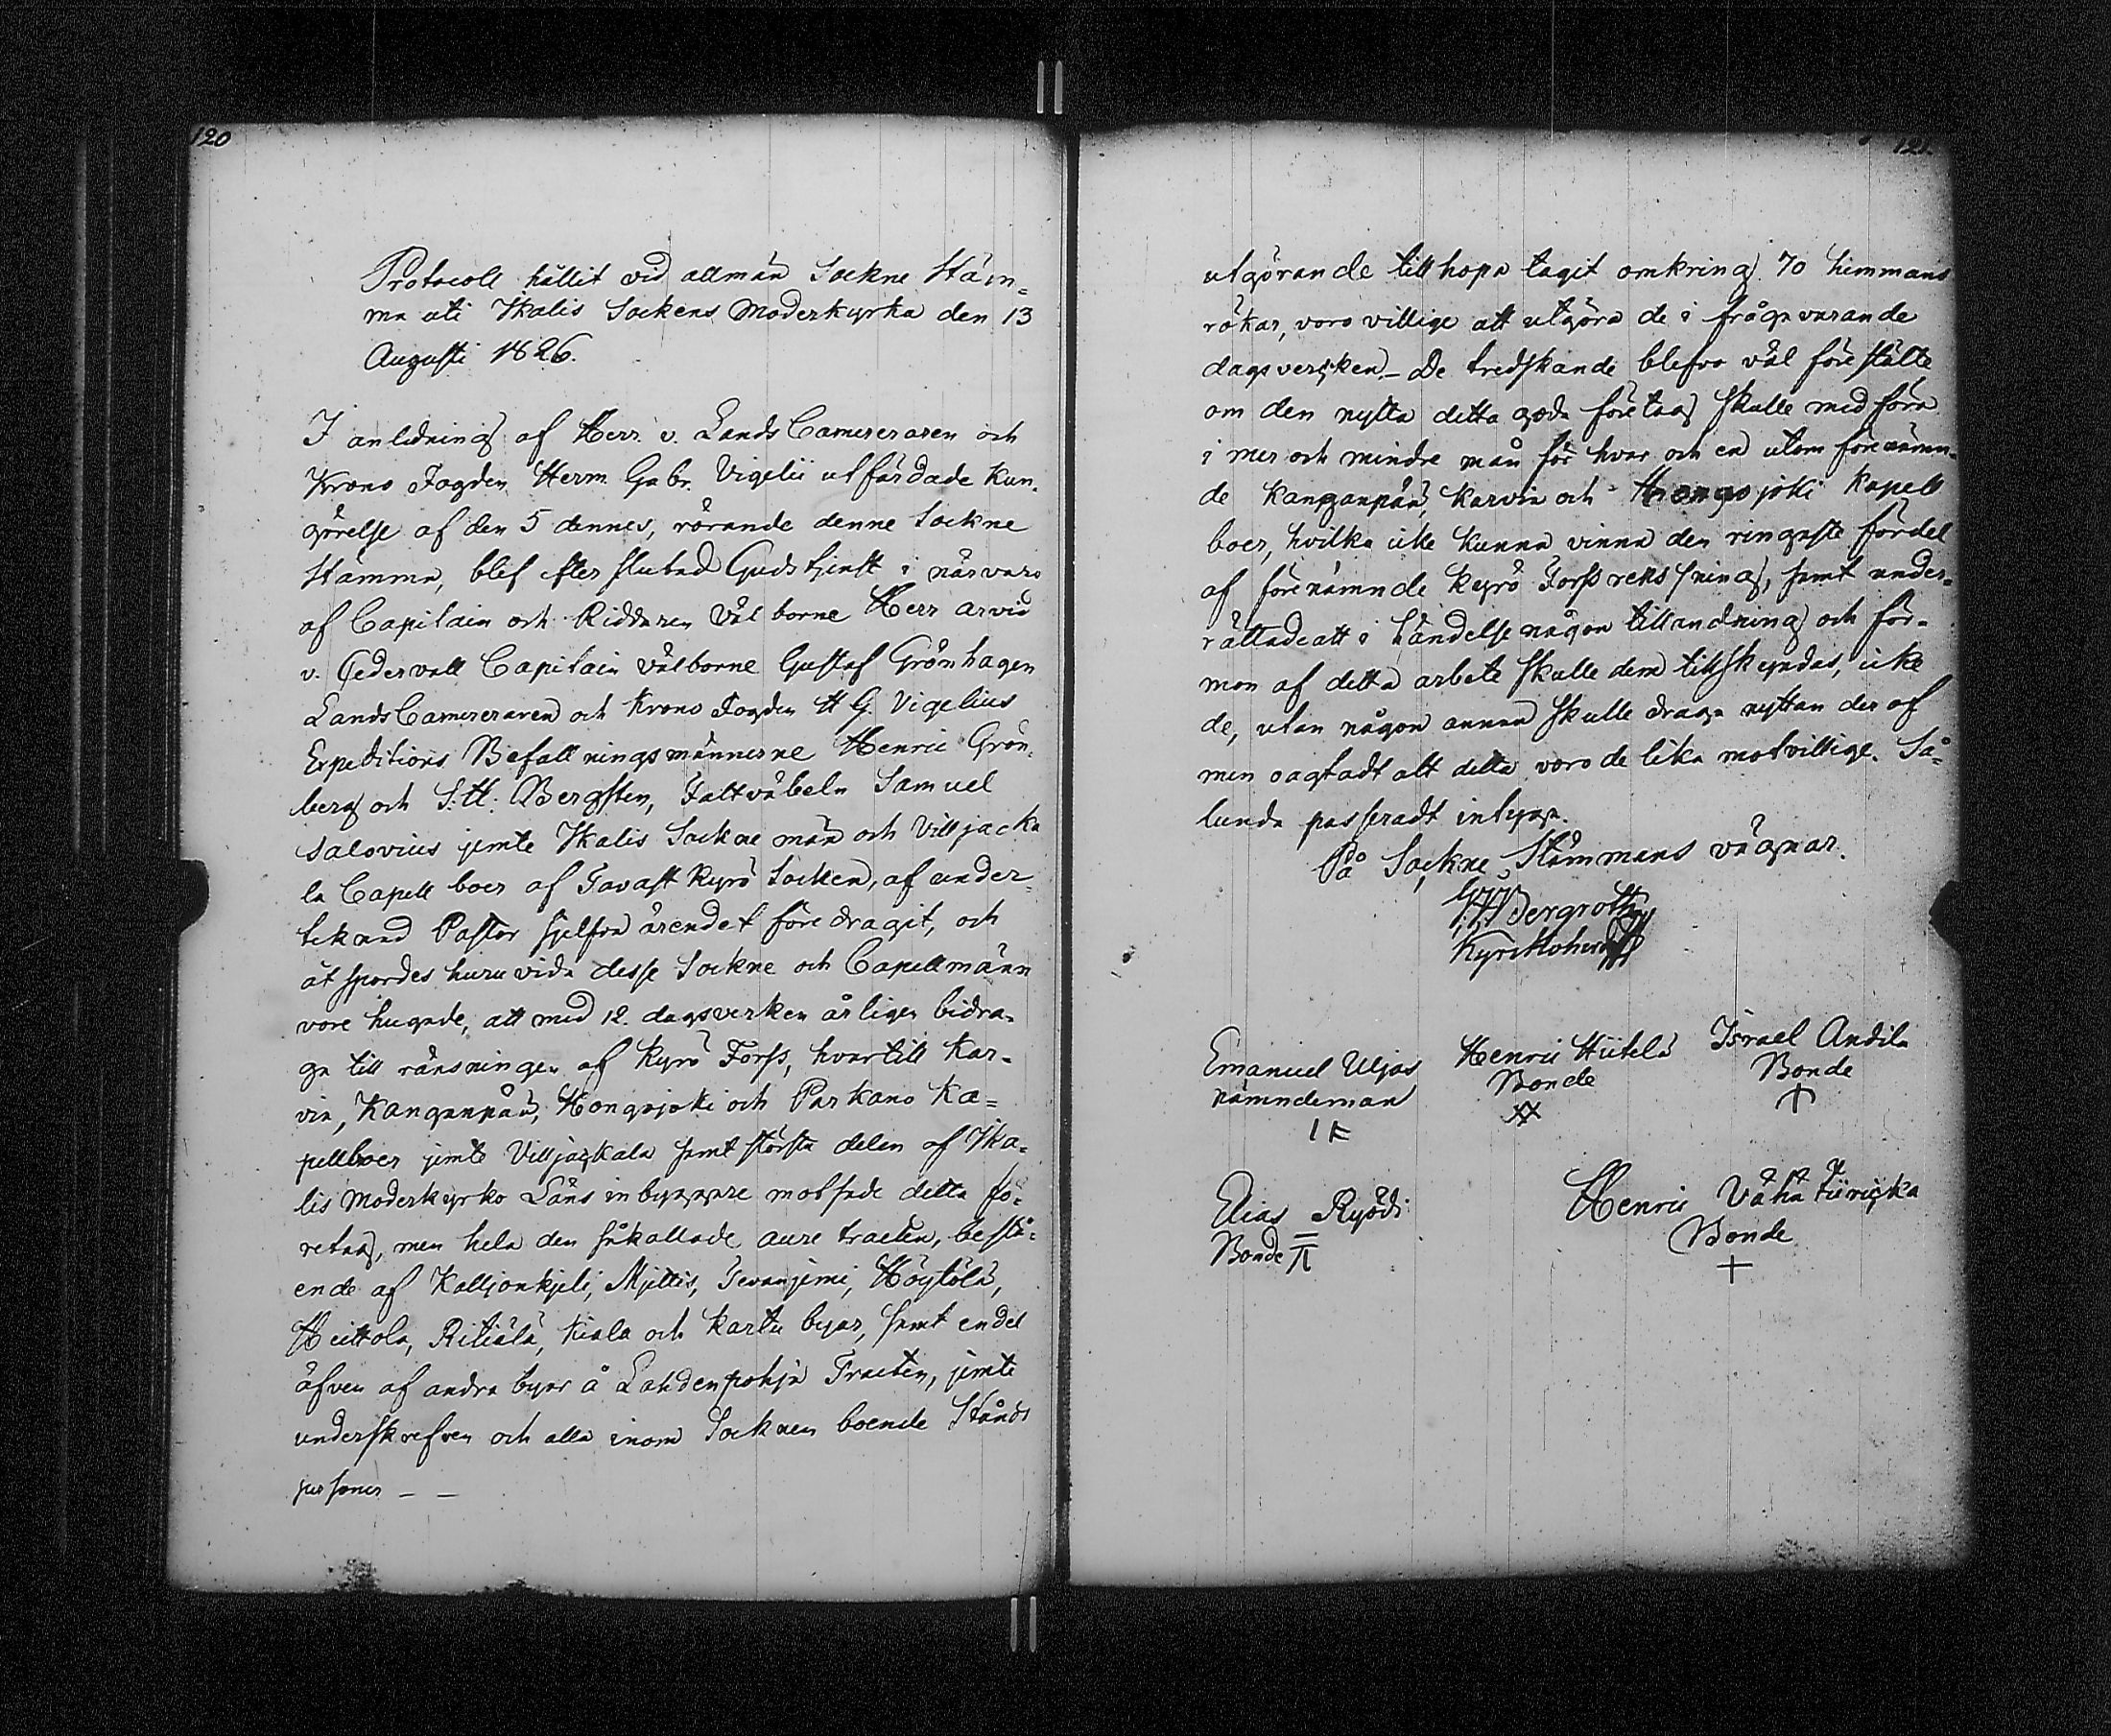 120
Protocoll hållit vid allmän Sockne Stäm=
ma uti Ikalis Sockens Moderkyrka den 13
Augusti 1826.
I anledning af Herr v. Lands Camereraren och
Krono Fogden Herm. Gabr. Vigelii utfärdade kun-
görelse af den 5 dennes, rörande denne Sockne
Stämma, blef efter slutad Gudstjenst i närvaro
af Capitain och Riddaren Välborne Herr Arvid
v. Cedervall Capitain välborne Gustaf Grönhagen
Lands Camereraren och Krono Fogden H G. Vigelius
Expeditions Befallningsmännerne Henric Grön-
berg och S: H: Bergsten, Fältväbeln Samuel
Salovius jemte Ikalis Sockne män och Villjacka
la Capell boer af Tavast Kyrö Socken, af under=
teknad Pastor sjelfva ärendet föredragit, och
åtspordes huruvida desse Sockne och Capellmänn
vore hugade, att med 12. dagsverken årligen bidra-
ga till ränsningen af Kyrö Forss, hvartill Kar-
via, Kanganpää, Hongojoki och Parkano Ka=
pellboer jemte Villjackala samt största delen af Ika-
lis Moderkyrko Läns inbyggare motsade detta fö-
retag, men hela den såkallade aure tracten, bestå-
ende af Kalljonkjeli, Mjettis, Jevanjemi, Höytölä,
Heittola, Ritiälä, Kiala och Kartu byar, samt endel
äfven af andra byar å Lahdenpohja Tracten, jemte
underskrefven och alla inom Socknen boende Stånds
personer _ _
121.
utgörande tillhopa tagit omkring 70 hemmans
rökar, voro villige att utgöra de i fråga varande
dagsverken.- De tredskande blefvo väl förestälte
om den nytta detta goda företag skulle medföra
i mer och mindre mån för hvar och en utom förenämn-
de Kanganpää, Karvia och Hongojoki Kapell
boer, hvilka icke kunna vinna den ringaste fördel
af förenämnde Kyrö Forss rensning, samt under-
rättade att i händelse någon tillandning och för-
mon af detta arbete skulle dem tillskyndas, icke
de, utan någon annan skulle draga nyttan der af
men oagtadt allt detta voro de lika motvillige. Så-
lunda passeradt intygga.
På Sockne Stämmans vägnar.
Bergroth
Kyrckoherde
Emanuel Uljas
nämndeman
Henric Hiitelä
Bonde
Israel Andila
Bonde
Elias Ryödi
Bonde
Henric Vähä Tiuricka
Bonde